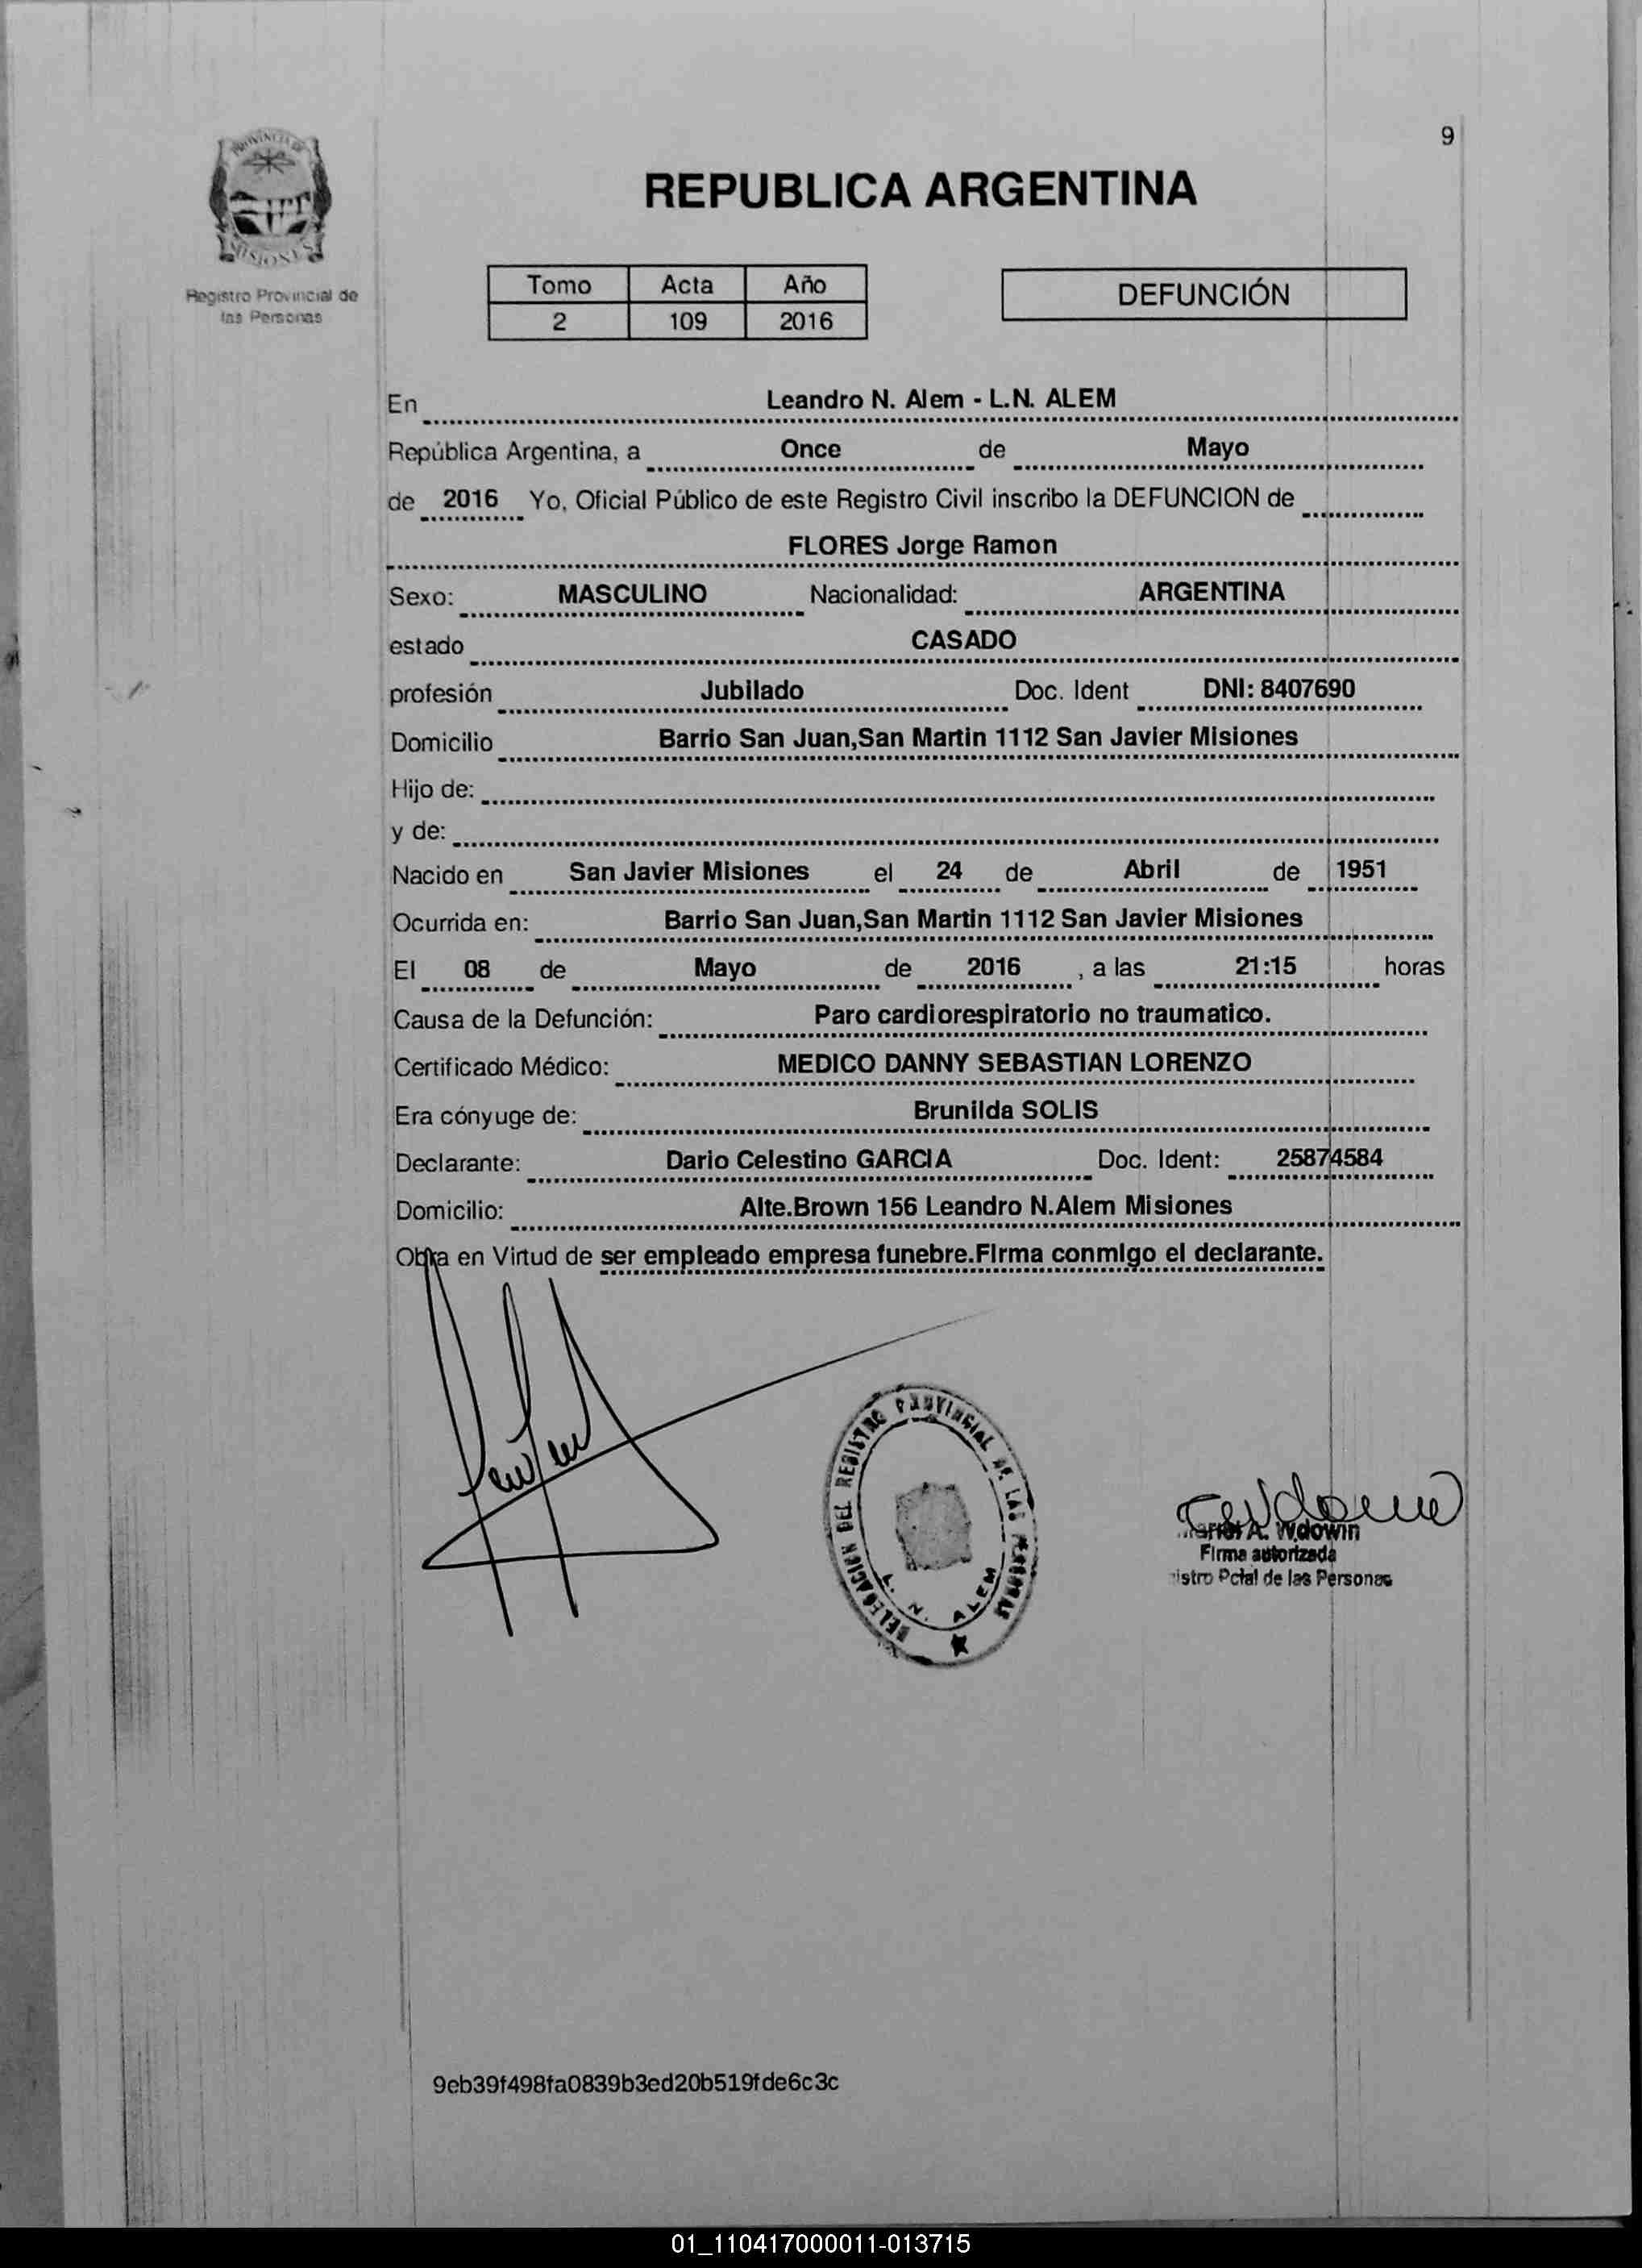 9
PROVINCIA DE
MISIONES
Registro Provincial de
las Personas
REPUBLICA ARGENTINA
Tomo Acta Año
2 109 2016
DEFUNCIÓN
En Leandro N. Alem - L.N. ALEM
República Argentina, a Once de Mayo
de 2016 Yo, Oficial Público de este Registro Civil inscribo la DEFUNCION de
FLORES Jorge Ramon
Sexo: MASCULINO Nacionalidad: ARGENTINA
estado CASADO
profesión Jubilado Doc. Ident DNI: 8407690
Domicilio Barrio San Juan,San Martin 1112 San Javier Misiones
Hijo de:
y de:
Nacido en San Javier Misiones el 24 de Abril de 1951
Ocurrida en: Barrio San Juan,San Martin 1112 San Javier Misiones
El 08 de Mayo de 2016 , a las 21:15 horas
Causa de la Defunción: Paro cardiorespiratorio no traumatico.
Certificado Médico: MEDICO DANNY SEBASTIAN LORENZO
Era cónyuge de: Brunilda SOLIS
Declarante: Dario Celestino GARCIA Doc. Ident: 25874584
Domicilio: Alte.Brown 156 Leandro N.Alem Misiones
Obra en Virtud de ser empleado empresa funebre.Firma conmigo el declarante.
DELEGACION DEL REGISTRO PROVINCIAL DE LAS PERSONAS
L. N. ALEM
A. Wdowin
Firma autorizada
Pcial de las Personas
9eb39f498fa0839b3ed20b519fde6c3c
01_110417000011-013715